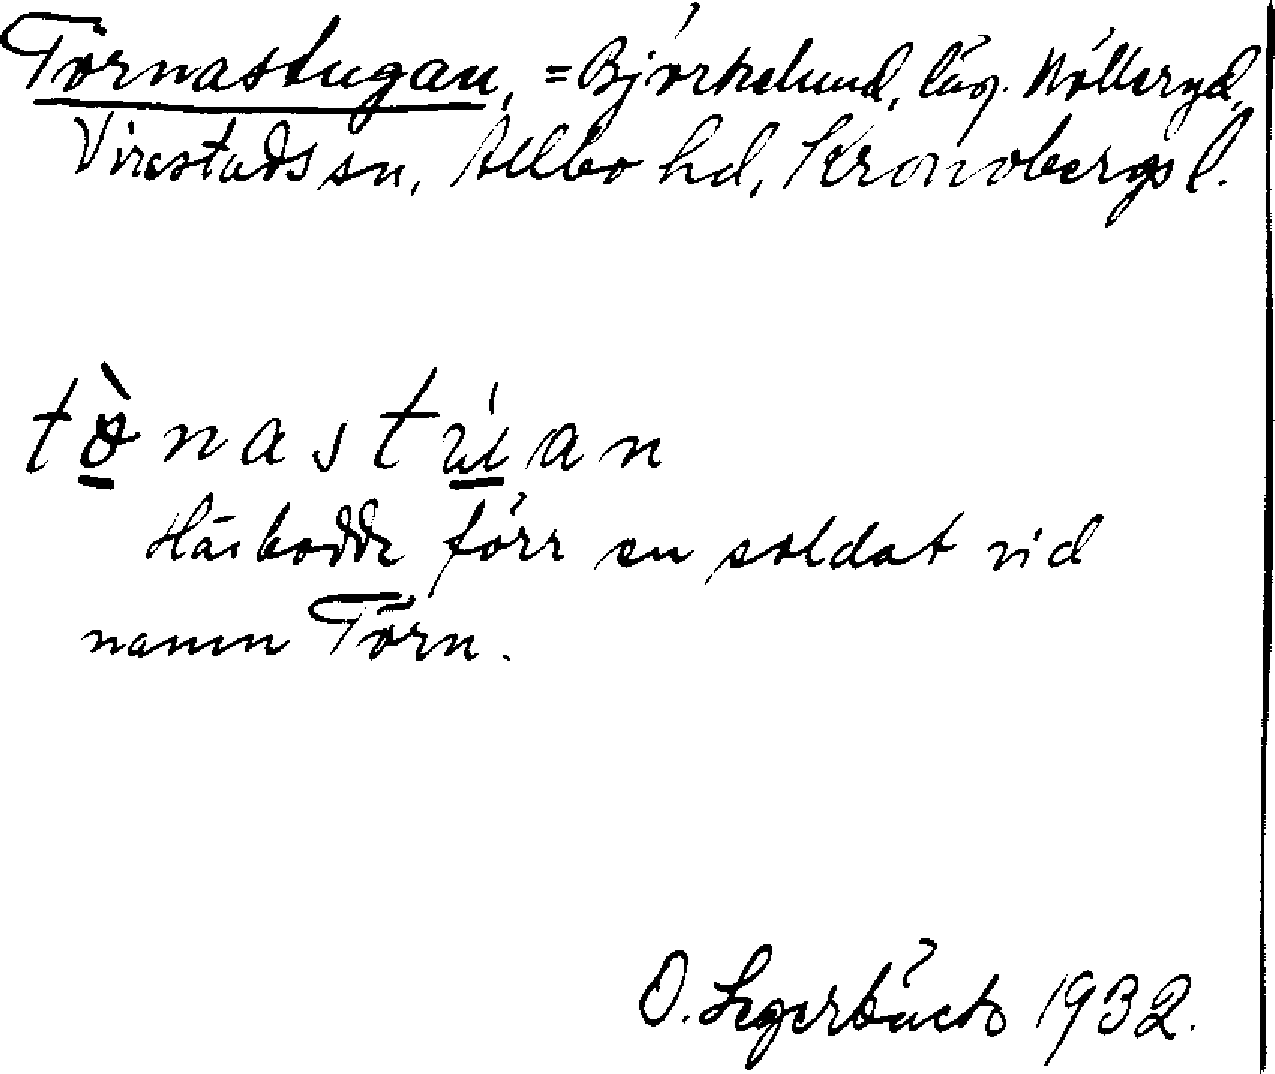 Törnastugan, =Björkelund, läg. Nölleryd,
Virestads sn, Allbo hd, Kronobergs l.
tø̀nastúan
Här bodde förr en soldat vid
namn Törn.
O. Segerbäck 1932.